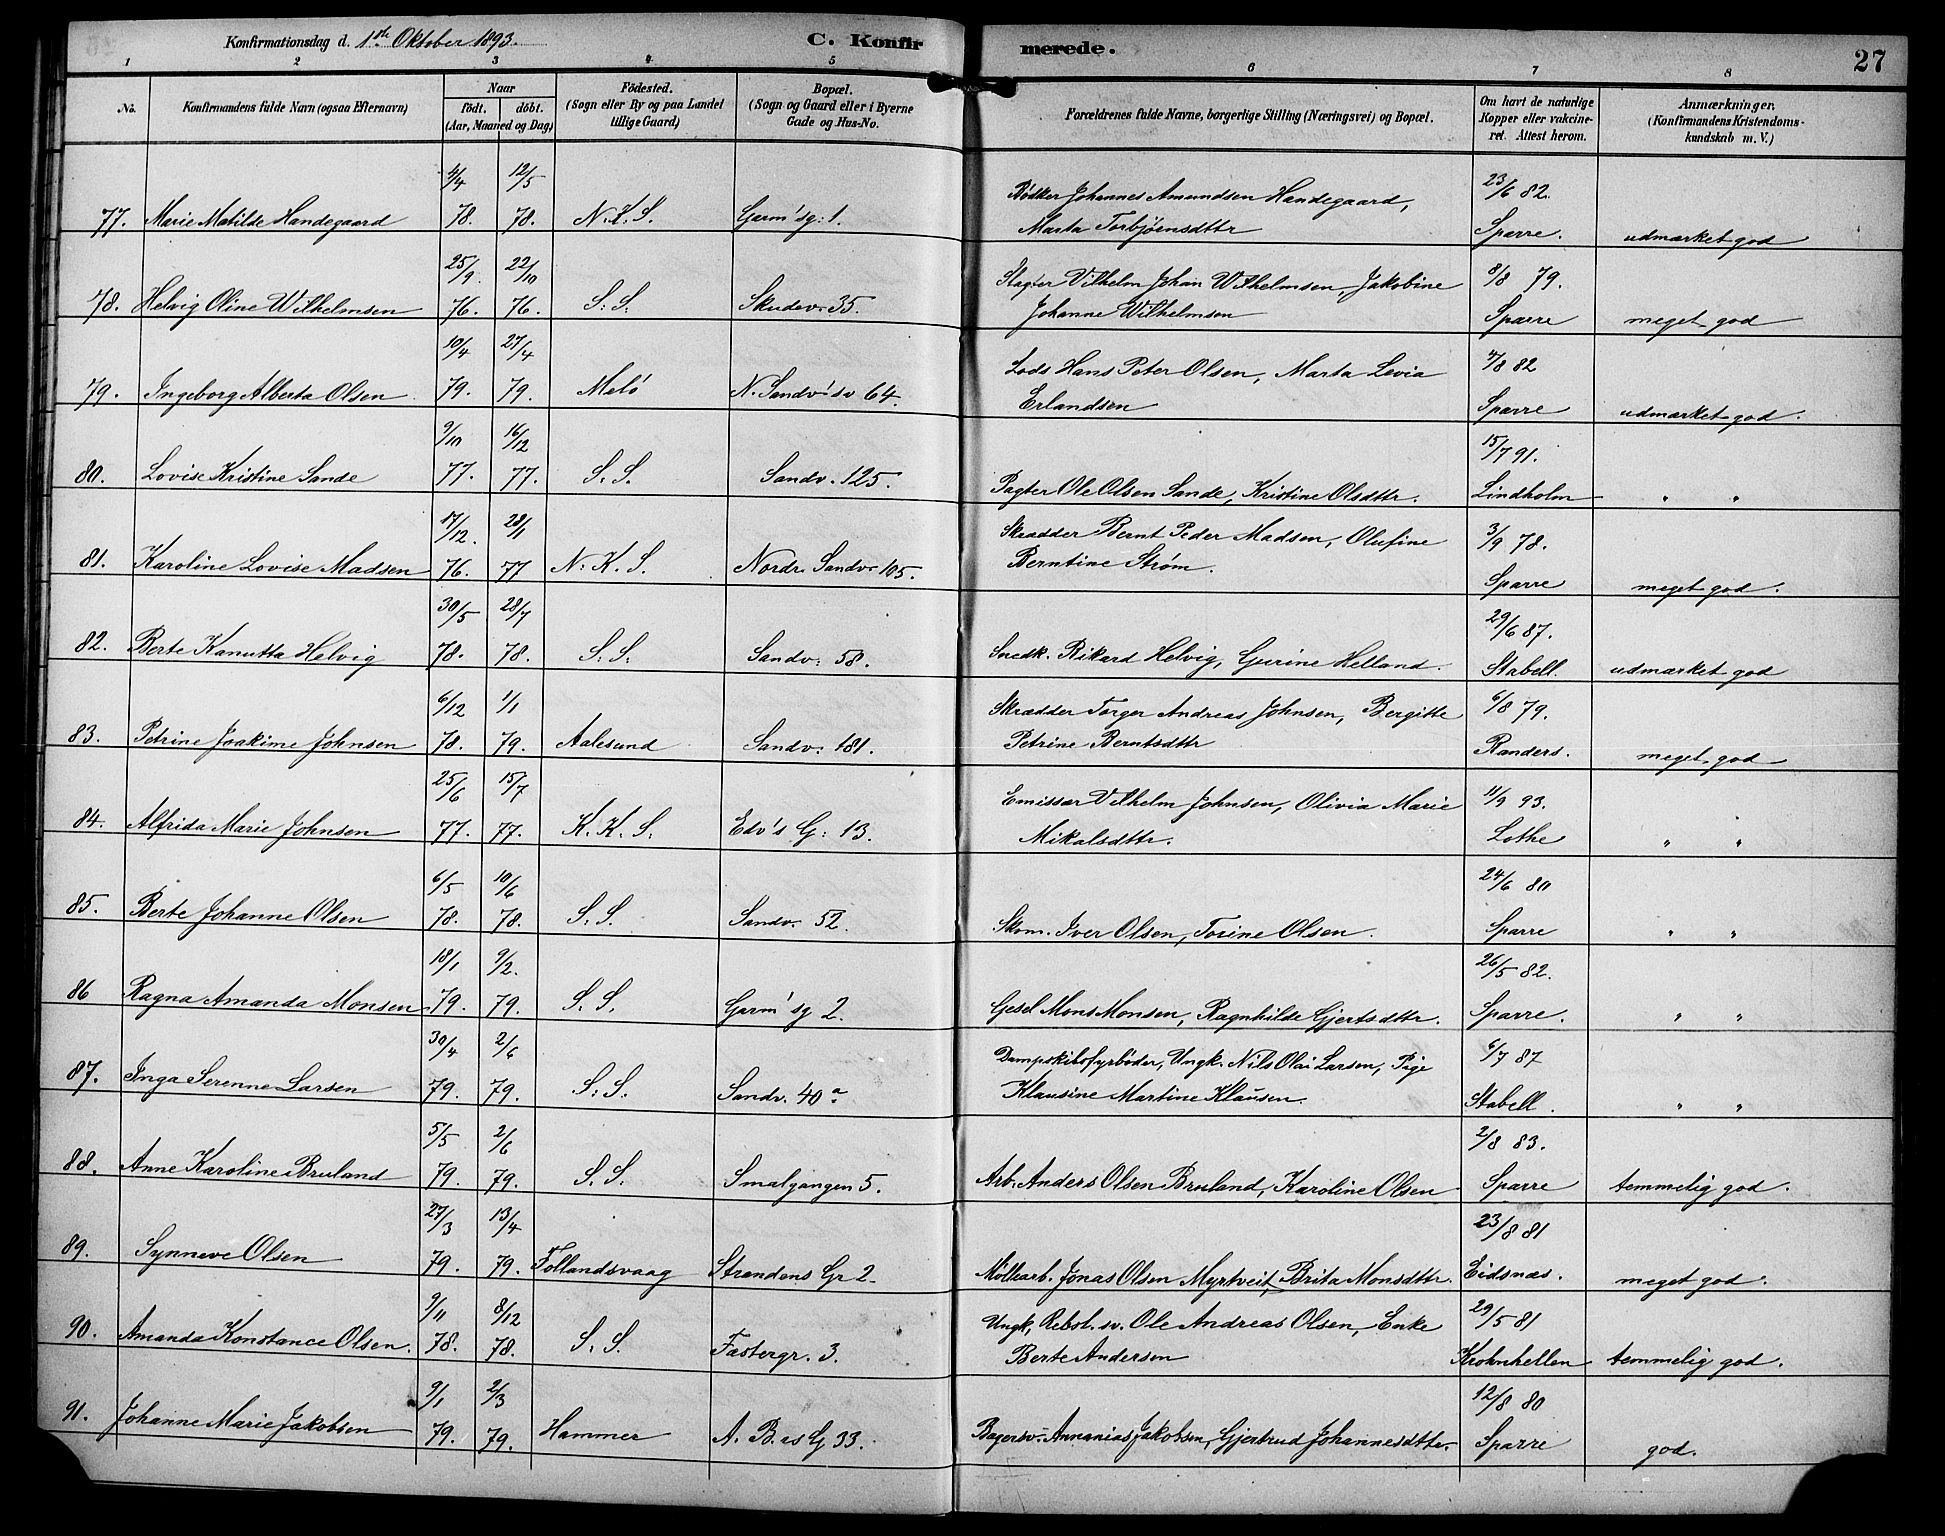 Konfirmationsdag d. 1ste Oktober 1893. C. Konfirmerede. 27
1 2 3 4 5 6 7 8
No. Konfirmandens fulde Navn (ogsaa Efternavn) Naar födt. döbt. (Aar, Maaned og Dag) Födested. (Sogn eller By og paa Landet tillige Gaard) Bopæl. (Sogn og Gaard eller i Byerne Gade og Hus-No. Forældrenes fulde Navne, borgerlige Stilling (Næringsvei) og Bopæl. Om havt de naturlige Kopper eller vakcineret. Attest herom. Anmærkninger. (Konfirmandens Kristendomskundskab m. V.)
4/4 12/5 Bödker Johannes Amundsen Handegaard, 23/6 82.
77. Marie Matilde Handegaard 78. 78. N. K. S. Garm'sg: 1. Marta Torbjöensdttr Sparre. udmærket god
25/9 22/10 Slagter Vilhelm Johan Wilhelmsen, Jakobine 8/8 79.
78. Helvig Oline Wilhelmsen 76. 76. S. S. Skudev. 35. Johanne Wilhelmsen Sparre meget god
10/4 27/4 Lods Hans Peter Olsen, Marta Levia 4/8 82
79. Ingeborg Alberta Olsen 79. 79. Melö N. Sandv'sv 64. Erlandsen Sparre udmærket god.
9/10 16/12 15/7 91.
80. Lovise Kristine Sande 77. 77. S. S. Sandv. 125. Pagter Ole Olsen Sande, Kristine Olsdttr. Lindholm " "
17/12. 28/1 Skrædder Bernt Peder Madsen, Olufine 3/9 78.
81. Karoline Lovise Madsen 76. 77 N. K. S. Nordr. Sandv. 105. Berntine Strøm. Sparre meget god.
30/5 28/7 29/6 87.
82. Berte Kanutta Helvig 78. 78. S. S. Sandv: 58. Snedk. Rikard Helvig, Gurine Helland. Stabell. udmærket god
6/12 1/1 Skrædder Torger Andreas Johnsen, Bergitte 6/8 79.
83. Petrine Joakime Johnsen 78. 79. Aalesund Sandv: 181. Petrine Berntsdttr Randers. meget god
25/6 15/7 Emissær Vilhelm Johnsen, Olivia Marie 11/9 93.
84. Alfrida Marie Johnsen 77. 77. K. K. S. Edv's G: 13. Mikalsdttr. Lothe " "
6/5 10/6 24/6 80
85. Berte Johanne Olsen 78. 78. S. S. Sandv. 52. Skom. Iver Olsen, Tosine Olsen. Sparre " "
18/1 9/2. 26/5 82.
86 Ragna Amanda Monsen 79. 79. S. S. Garm'sg 2. Gesel Mons Monsen, Ragnhilde Gjertsdttr. Sparre. " "
30/4 2/6 Dampskibsfyrböder, Ungk. Nils Olai Larsen, Pige 6/7 87
87. Inga Serenne Larsen 79. 79. S. S. Sandv. 40 a Klausine Martine Klausen. Stabell. " "
5/5 2/6 2/8 83.
88. Anne Karoline Bruland 79. 79. S. S. Smalgangen 5. Arb. Anders Olsen Bruland, Karoline Olsen Sparre temmelig god.
27/3 13/4 23/8 81
89. Synneve Olsen 79. 79. Tollandsvaag Strandens Gr 2. Möllearb. Jonas Olsen Myrtveit, Brita Monsdttr. Eidsnæs. meget god.
9/11 8/12 Ungk, Rebsl. sv. Ole Andreas Olsen, Enke 29/5 81
90. Amanda Konstance Olsen. 78. 78. S. S. Fastergr. 3. Berte Andersen Krohnhellen temmelig god.
9/1 2/3 12/8 80
91. Johanne Marie Jakobsen 79. 79. Hammer A. B. as G 33. Bagersv. Annanias Jakobsen, Gjertrud Johannesdttr. Sparre god.